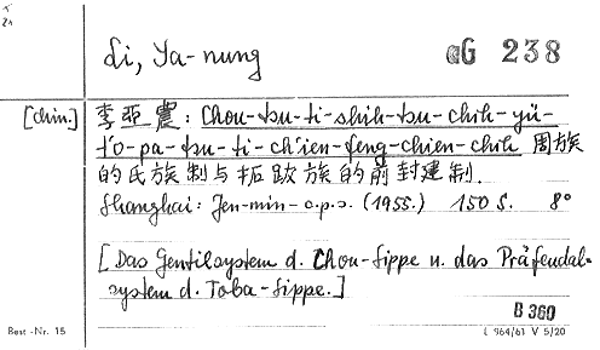 Li, Ya-nung
aG 238
[chin.]
李亞農: Chou-tsu-ti-shih-tsu-chih-yü-
t'o-pa-tsu-ti-ch'ien-feng-chien-chih 周族
的氏族制与拓跋族的前封建制.
Shanghai: Jen-min-o.p.s. (1955.) 150 S. 8°
[Das Gentilsystem d. Chou-Sippe u. das Präfeudal-
system d. Toba-Sippe.]
B 360
Best.-Nr. 15
L 964/61 V 5/20